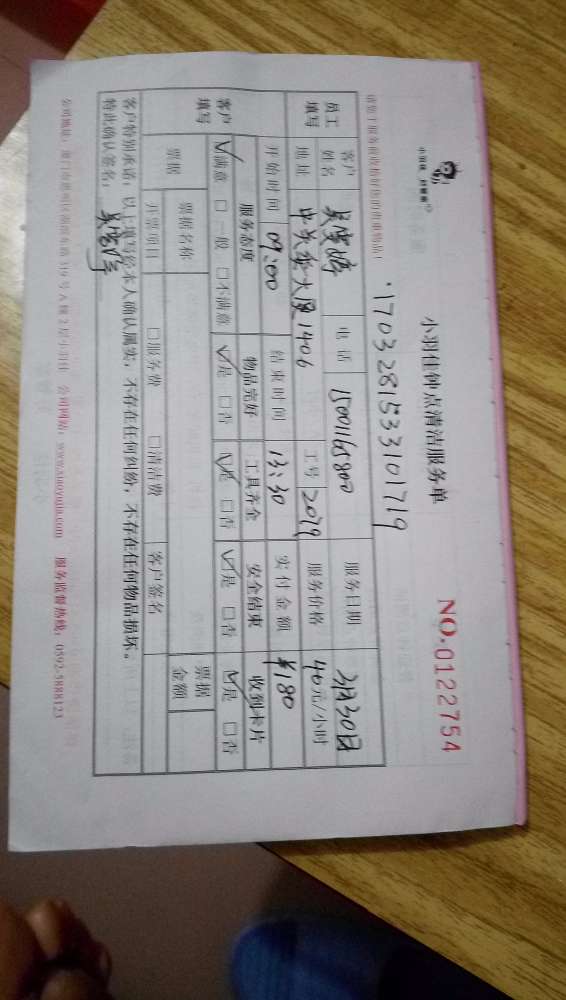 小羽佳钟点清洁服务单
NO.0122754
1703281533101719
员工填写 客户姓名 电话 15001165800 服务日期 3月30日
地址 中关村大厦1406 工号 2079 服务价格 40元/小时
开始时间 09:00 结束时间 13:30 实付金额 ¥180
客户填写 服务态度 物品完好 工具齐全 安全结束 收到卡片
☑满意 □一般 □不满意 ☑是 □否 ☑是 □否 ☑是 □否 ☑是 □否
票据 票据名称 票据金额
开票项目 □服务费 □清洁费 客户签名
客户特别承诺:以上填写经本人确认属实,不存在任何纠纷,不存在任何物品损坏。
特此确认签名:
公司网站:www.xiaoyujia.com 服务监督热线:0592-5888123